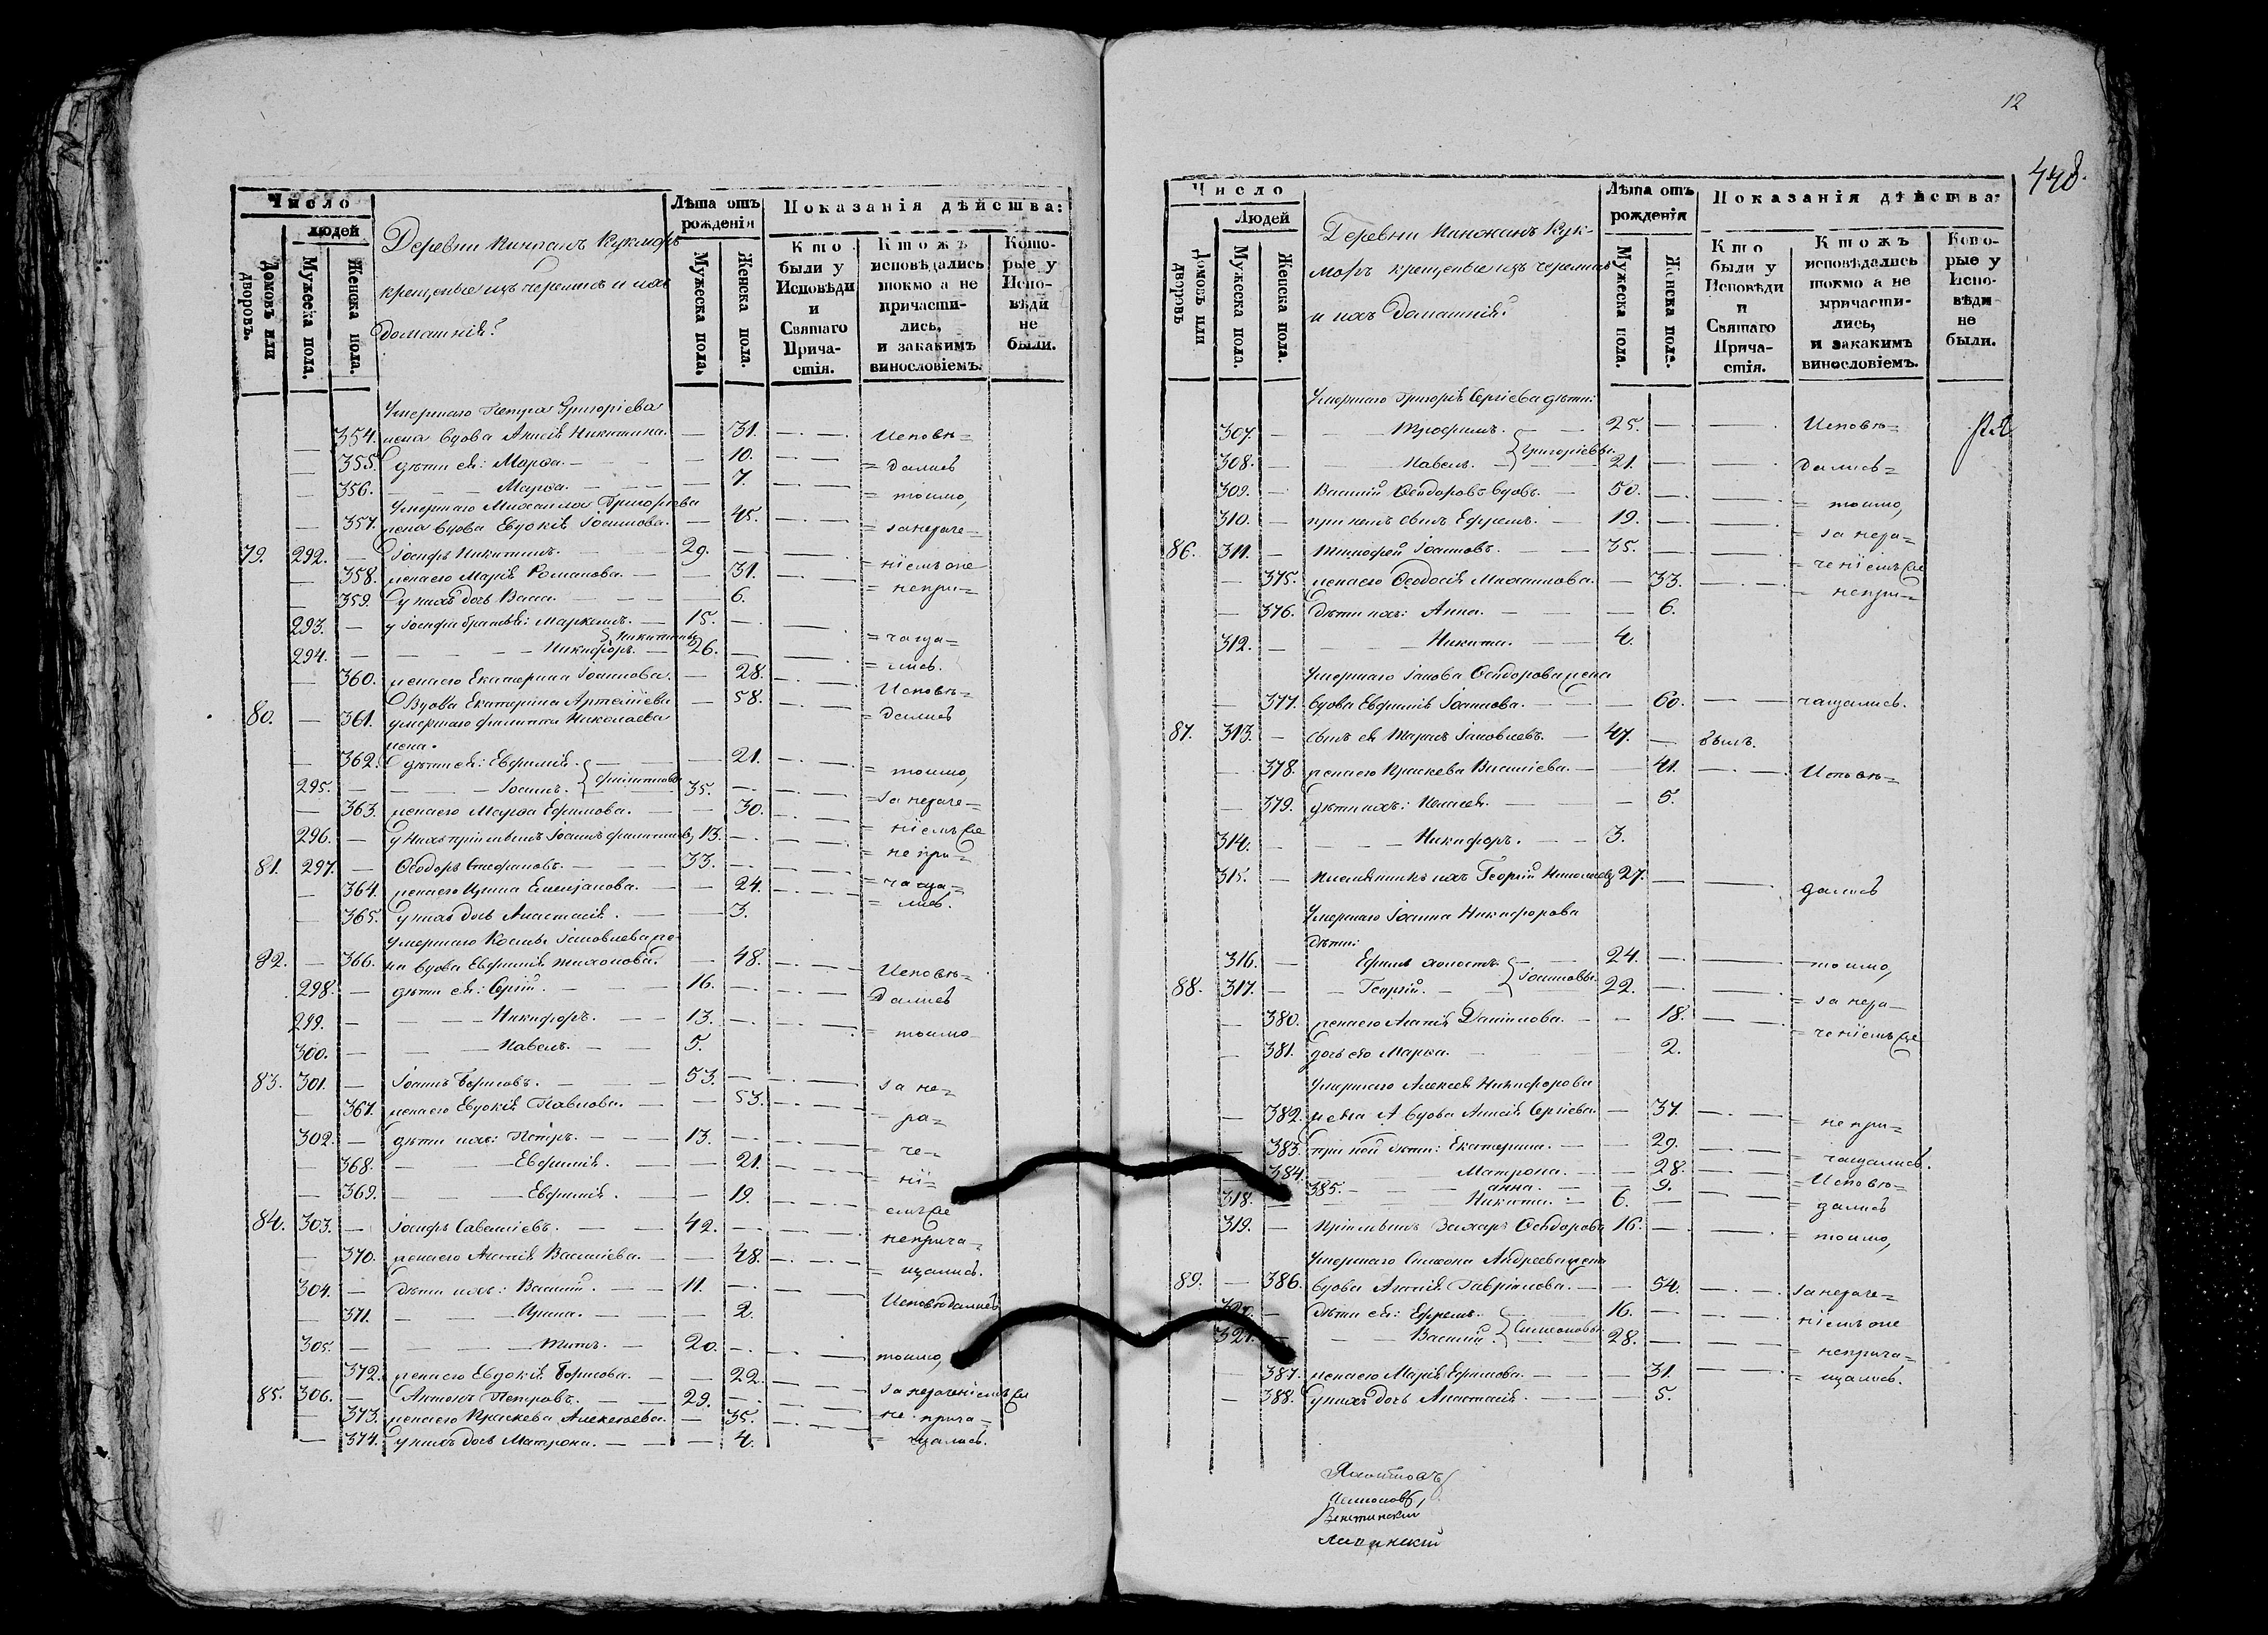 Число
людей
Домовъ или дворовъ.
Мужеска пола.
Женска пола.
Деревни Кинжалъ Кукморъ
крещеные изъ черемисъ и ихъ
домашнія:
Лѣта отъ рожденія
Мужеска пола.
Женска пола.
Показанія дѣйства:
Кто были у Исповѣди и Святаго Прича-стія.
Ктожъ исповѣдались токмо а не причасти-лись, и закакимъ винословіемъ.
Кото-рые у Испо-вѣди не были.
Умершаго Петра Григоріева
354. жена вдова Анисія Никитина. — 31. Исповѣ=
355. дѣти ея: Марѳа. — 10. = дались
356. — Марѳа. — 7. = токмо,
Умершаго Михаила Григорьева
357. жена вдова Евдокія Іоаннова. — 45. = занераче=
79. 292. — Іосифъ Никитинъ. — 29. = ніемъ оне
358. жена его Марія Романова. — 31. = непри=
359. у нихъ дочь Васса. — 6.
293. — у Іосифа братья: Маркелъ. — 15. = чаща=
Никитины
294. — Никифоръ. — 26. = лись.
360. жена его Екатерина Іоаннова. — 28. Исповѣ=
Вдова Екатерина Артеміева — 58. = дались
80. — 361. умершаго Филиппа Николаева
жена.
362. дѣти ея: Евфимія. — 21. = токмо,
295. — Іоаннъ. Филипповы 35. = за нераче=
363. жена его Марѳа Ефимова. — 30. = ніемъ
296. — у нихъ пріимышъ Іоаннъ Филипповъ, 13. = непри=
81. 297. — Ѳеодоръ Стефановъ. — 33. = чаща=
364. жена его Ирина Емеліанова. — 24. = лись.
365. у нихъ дочь Анастасія. — 3.
Умершаго Космы Іаковлева же-
82. — 366. на вдова Евфимія Тихонова. — 48. Исповѣ=
298. — дѣти ея: Сергій. — 16. = дались
299. — Никифоръ. — 13. = токмо
300. — Павелъ. — 5.
83. 301. — Іоаннъ Борисовъ. — 53. за не=
367. жена его Евдокія Павлова. — 53. = ра=
302. — дѣти ихъ: Петръ. — 13. = че=
368. — Евфимія. — 21. = ні=
369. — Евфимія. — 19. = емъ
84. 303. — Іосифъ Савеліевъ. — 42. неприча=
370. жена его Агапія Василіева. — 48. = щались.
304. — дѣти ихъ: Василій. — 11. Исповѣдались
371. — Ирина. — 2.
305. — Титъ. — 20. токмо,
372. жена его Евдокія Борисова. — 22. за нераченіемъ
85. 306. — Антонъ Петровъ. — 29. = не прича=
373. жена его Праскева Алексѣева. — 35. = щались.
374. у нихъ дочь Матрона. — 4.
12
448.
Число
Людей
Домовъ или дворовъ
Мужеска пола.
Женска пола.
Деревни Кинжанъ Кук-
моръ крещеные изъ черемисъ
и ихъ домашнія:
Лѣта отъ рожденія
Мужеска пола.
Женска пола.
Показанія дѣйства:
Кто были у Исповѣди и Святаго Прича-стія.
Ктожъ исповѣдались токмо а не причасти-лись, и закакимъ винословіемъ.
Кото-рые у Испо-вѣди не были.
Умершаго Григорія Сергіева дѣти:
307. — Трофимъ. — 25. Исповѣ=
Григорьевы.
308. — Павелъ. — 21. дались=
309. — Василій Ѳеодоровъ вдовъ. — 50. = токмо,
310. — при немъ сынъ Ефремъ. — 19. = за нера=
86. 311. — Тимофей Іоанновъ. — 35. = ченіемъ
375. жена его Ѳеодосія Михаилова. — 33. = непри=
376. дѣти ихъ: Анна. — 6.
312. — Никита. — 4.
Умершаго Іакова Ѳеодорова жена
377. вдова Евфимія Іоаннова. — 60. чащались.
87. 313. — сынъ ея Тарасъ Іаковлевъ. — 47. былъ.
378. жена его Праскева Василіева. — 41. Исповѣ=
379. дѣти ихъ: Пелагея. — 5.
314. — Никифоръ. — 3.
315. — племянникъ ихъ Георгій Николаевъ 27. дались
Умершаго Іоанна Никифорова
дѣти:
316. — Ефимъ холостъ. — 24. токмо,
Іоанновы.
88. 317. — Георгій. — 22. = за нера=
380. жена его Агапія Данилова. — 18. = ченіемъ
381. дочь его Марѳа. — 2.
Умершаго Алексѣя Никифорова
382. жена вдова Анисія Сергіева — 37. = непри=
383. при ней дѣти: Екатерина. — 29. = чащались.
384. Матрона. — 28. = Исповѣ=
385. — анна. — 9. = дались
318. Никита. — 6.
319. — Пріимышъ Захаръ Ѳеодоровъ 16. = токмо,
Умершаго Симеона Андреева жена
89. — 386. вдова Агапія Гавріилова. — 54. занераче=
320. — дѣти ея: Ефремъ. — 16. ніемъ оне
Симеоновы
321. — Василій. — 28. = неприча=
387. жена его Марія Ефимова. — 31. = щались.
388. у нихъ дочь Анастасія. — 5.